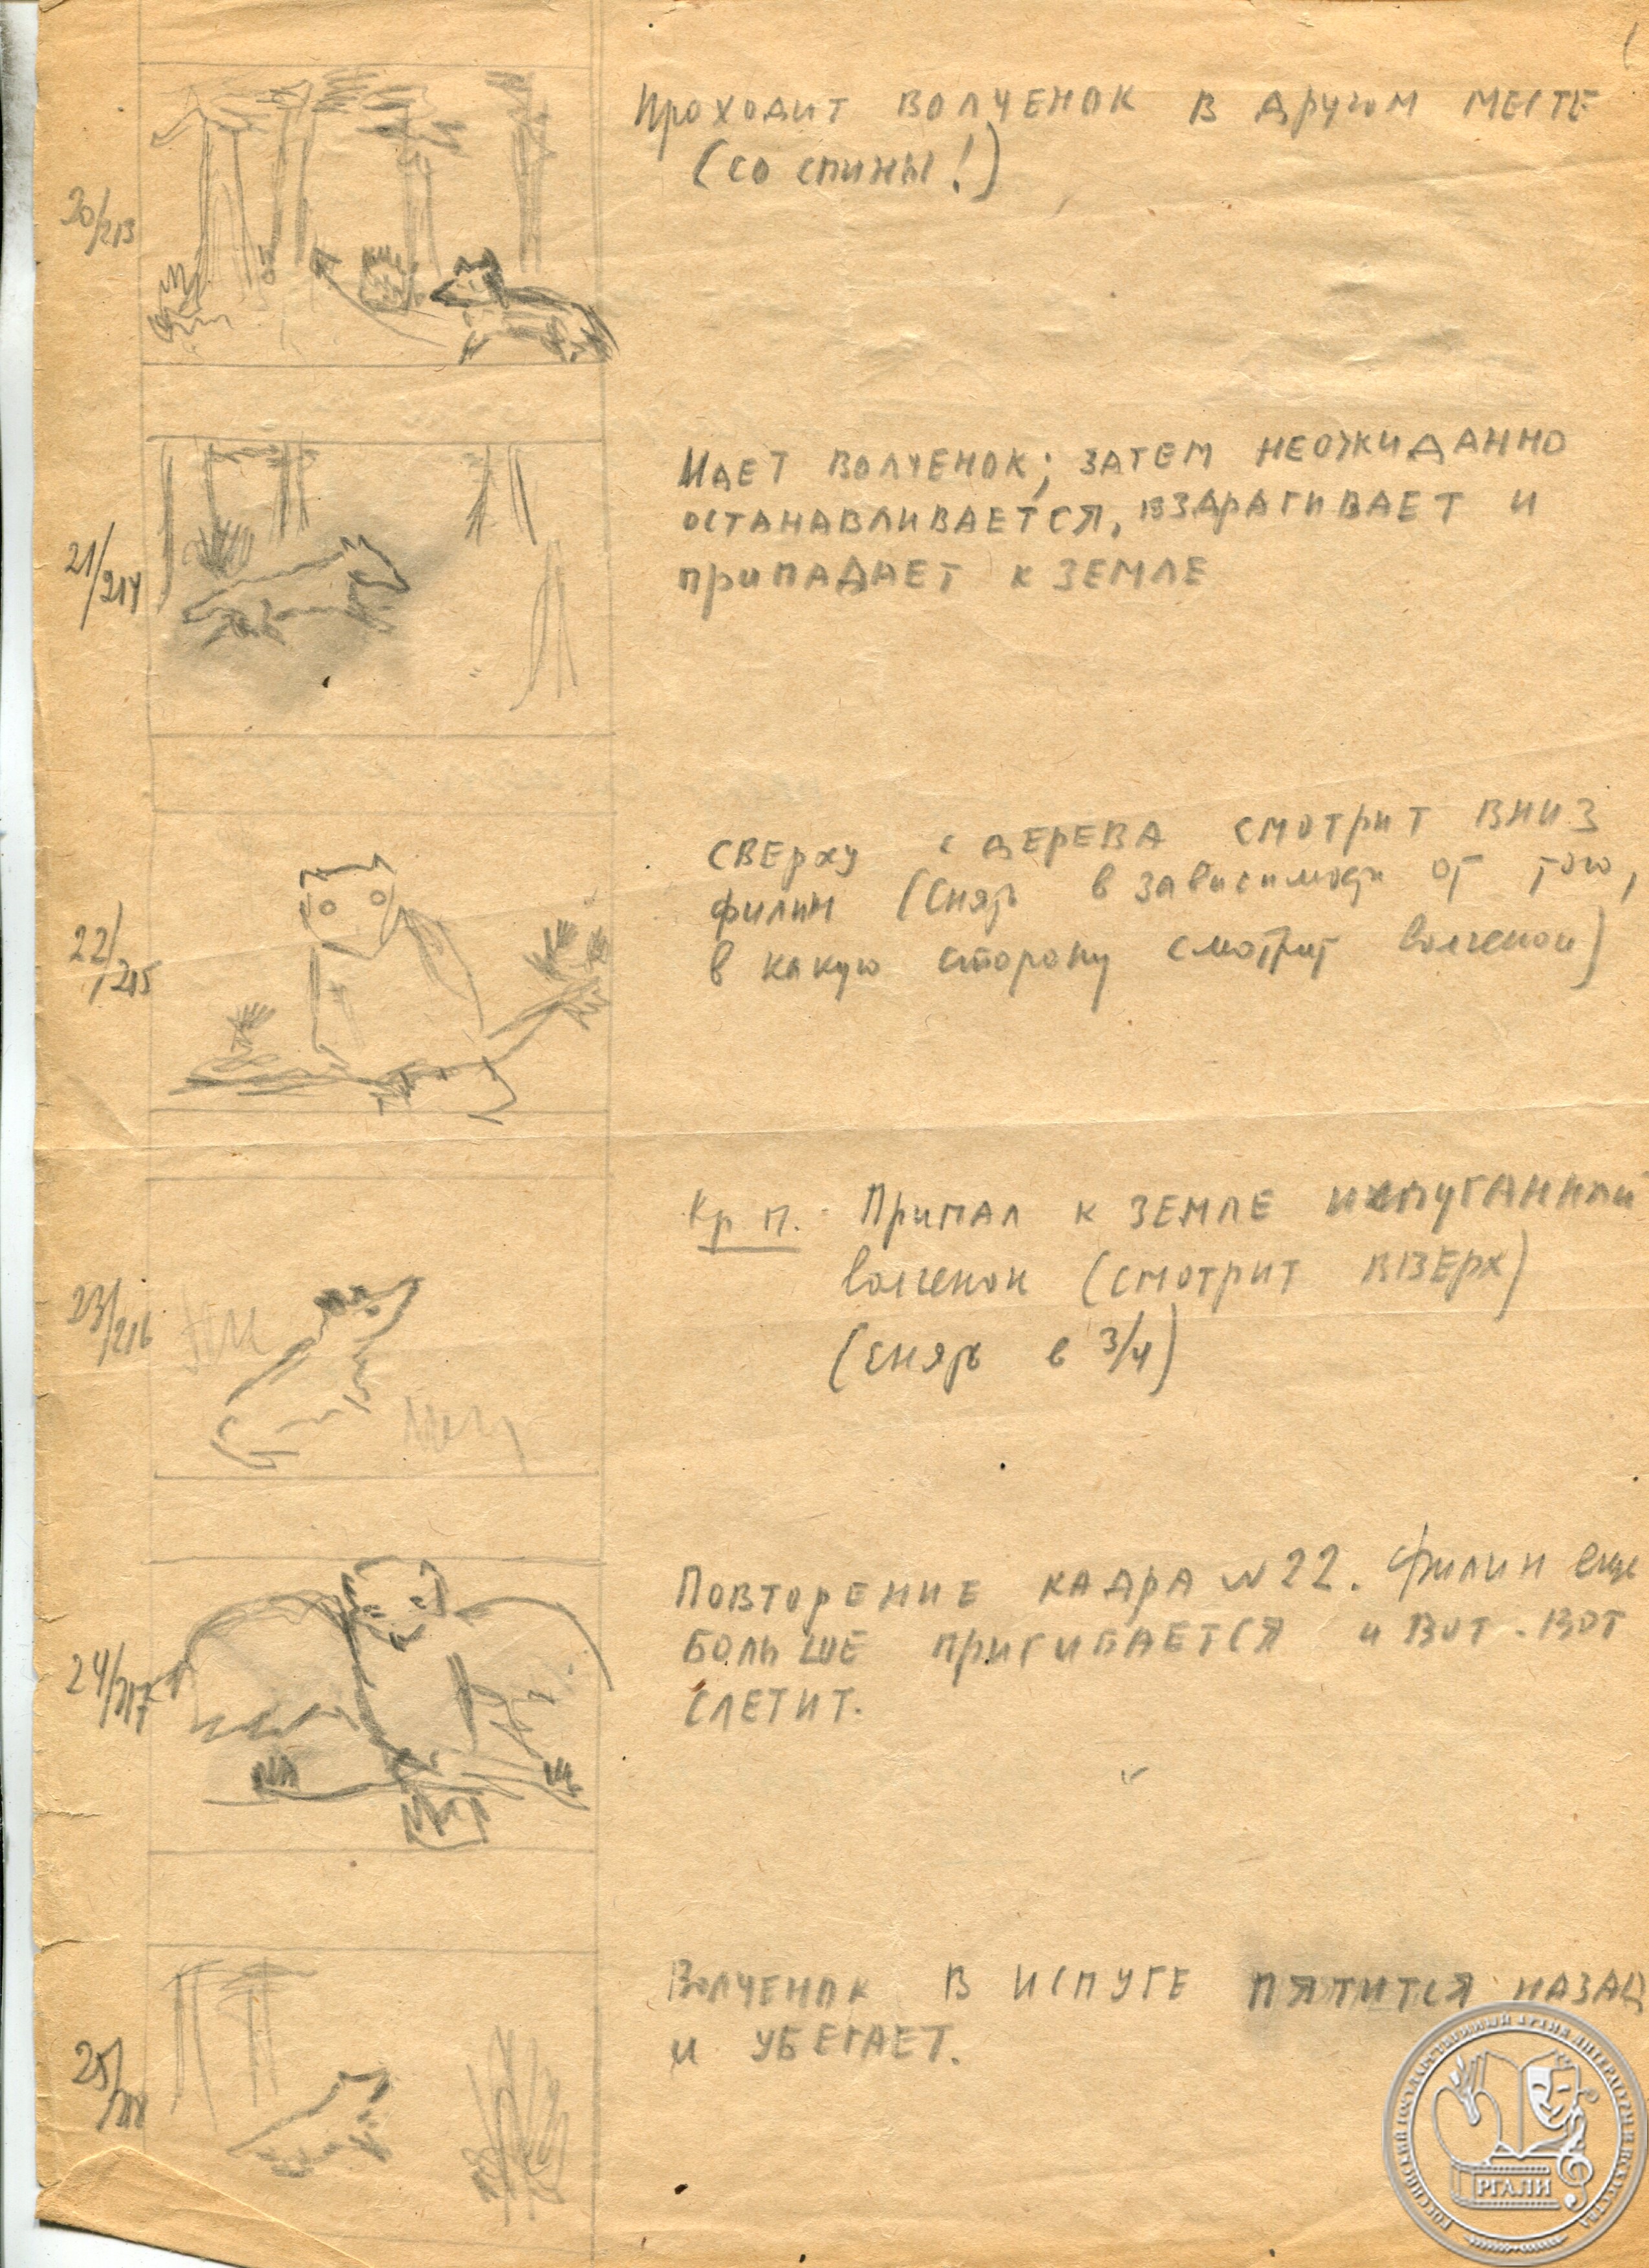 20/213
Проходит волченок в другом месте
(со спины!)
21/214
Идет волченок; затем неожиданно
останавливается, вздрагивает и
припадает к земле
22/215
сверху с дерева смотрит вниз
филин (снять в зависимости от того,
в какую сторону смотрит волченок)
23/216
Кр п. Припал к земле испуганный
волченок (смотрит вверх)
(снять в 3/4)
24/217
Повторение кадра №22. Филин еще
больше пригибается и вот-вот
слетит.
25/218
Волченок в испуге пятится назад
и убегает.
РОССИЙСКИЙ ГОСУДАРСТВЕННЫЙ АРХИВ ЛИТЕРАТУРЫ И ИСКУССТВА
РГАЛИ